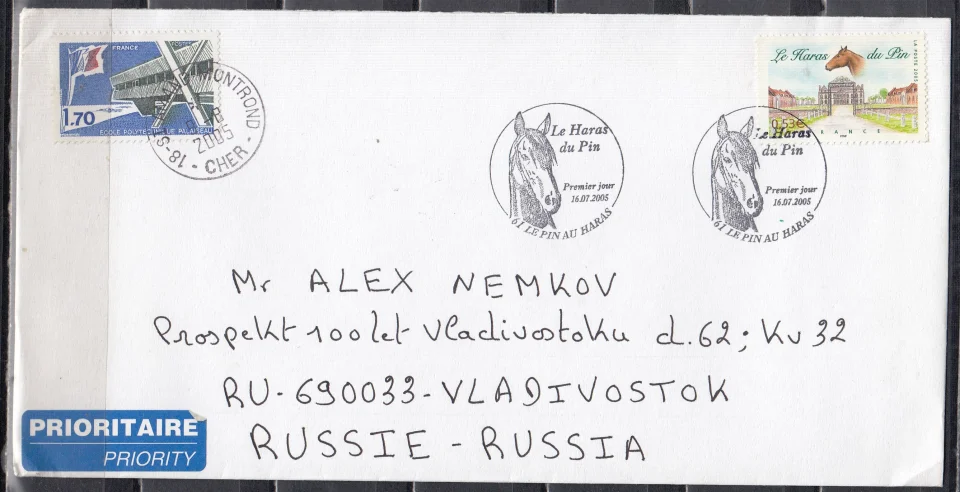 FRANCE
1.70
ECOLE POLYTECHNIQUE PALAISEAU
MONTROND
2005
18-S
- CHER -
Le Haras du Pin
LA POSTE 2005
0,53€
FRANCE
Le Haras
du Pin
Premier jour
16.07.2005
61 LE PIN AU HARAS
Le Haras
du Pin
Premier jour
16.07.2005
61 LE PIN AU HARAS
Mr ALEX NEMKOV
Prospekt 100 let Vladivostoku d.62; Kv 32
RU-690033-VLADIVOSTOK
RUSSIE - RUSSIA
PRIORITAIRE
PRIORITY